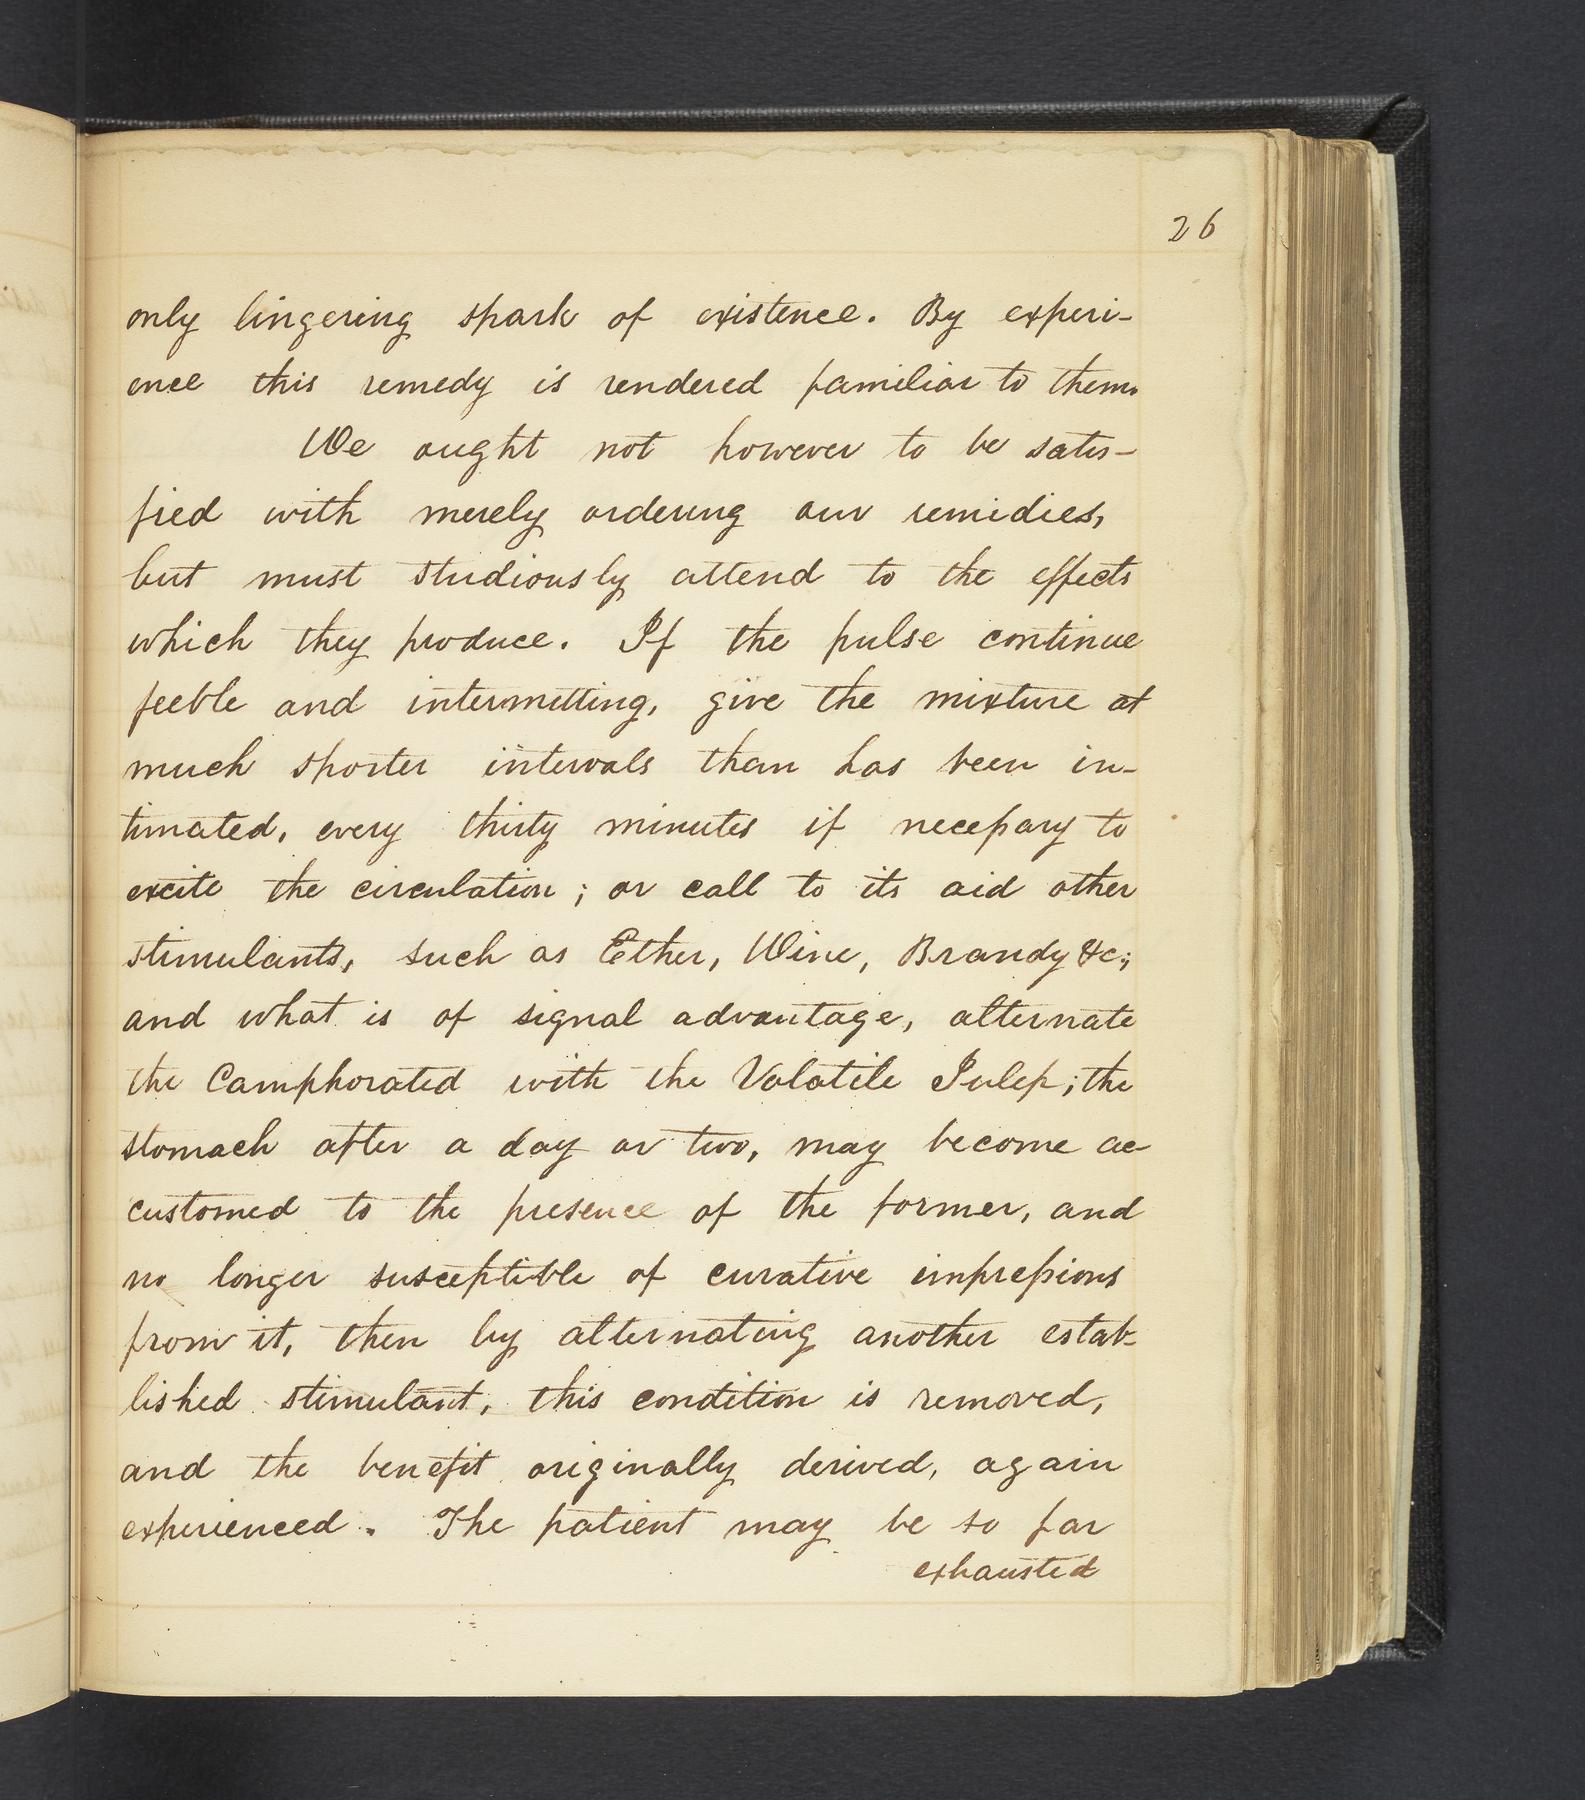 26
only lingering spark of existence. By experi-
ence this remedy is rendered familiar to them.
We ought not however to be satis-
fied with merely ordering our remidies,
but must studiously attend to the effects
which they produce. If the pulse continue
feeble and intermitting, give the mixture at
much shorter intervals than has been in-
timated, every thirty minutes if necessary to
excite the circulation; or call to its aid other
stimulants, such as Ether, Wine, Brandy &c;
and what is of signal advantage, alternate
the Camphorated with the Volatile Julep; the
stomach after a day or two, may become ac-
customed to the presence of the former, and
no longer susceptible of curative impressions
from it, then by alternating another estab-
lished stimulant, this condition is removed,
and the benefit originally derived, again
experienced. The patient may be so far
exhausted